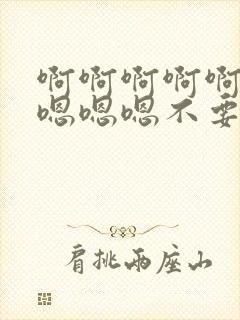 啊啊啊啊啊
嗯嗯嗯不要
肩挑两座山